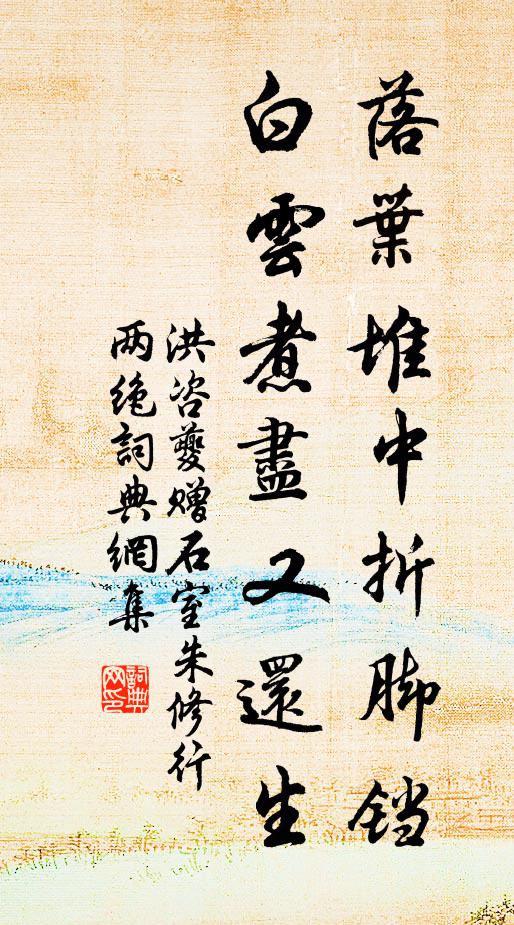 落葉堆中折脚铛
白雲煮盡又還生
洪咨夔赠石室朱修行
两绝詞典網集
詞典
网印